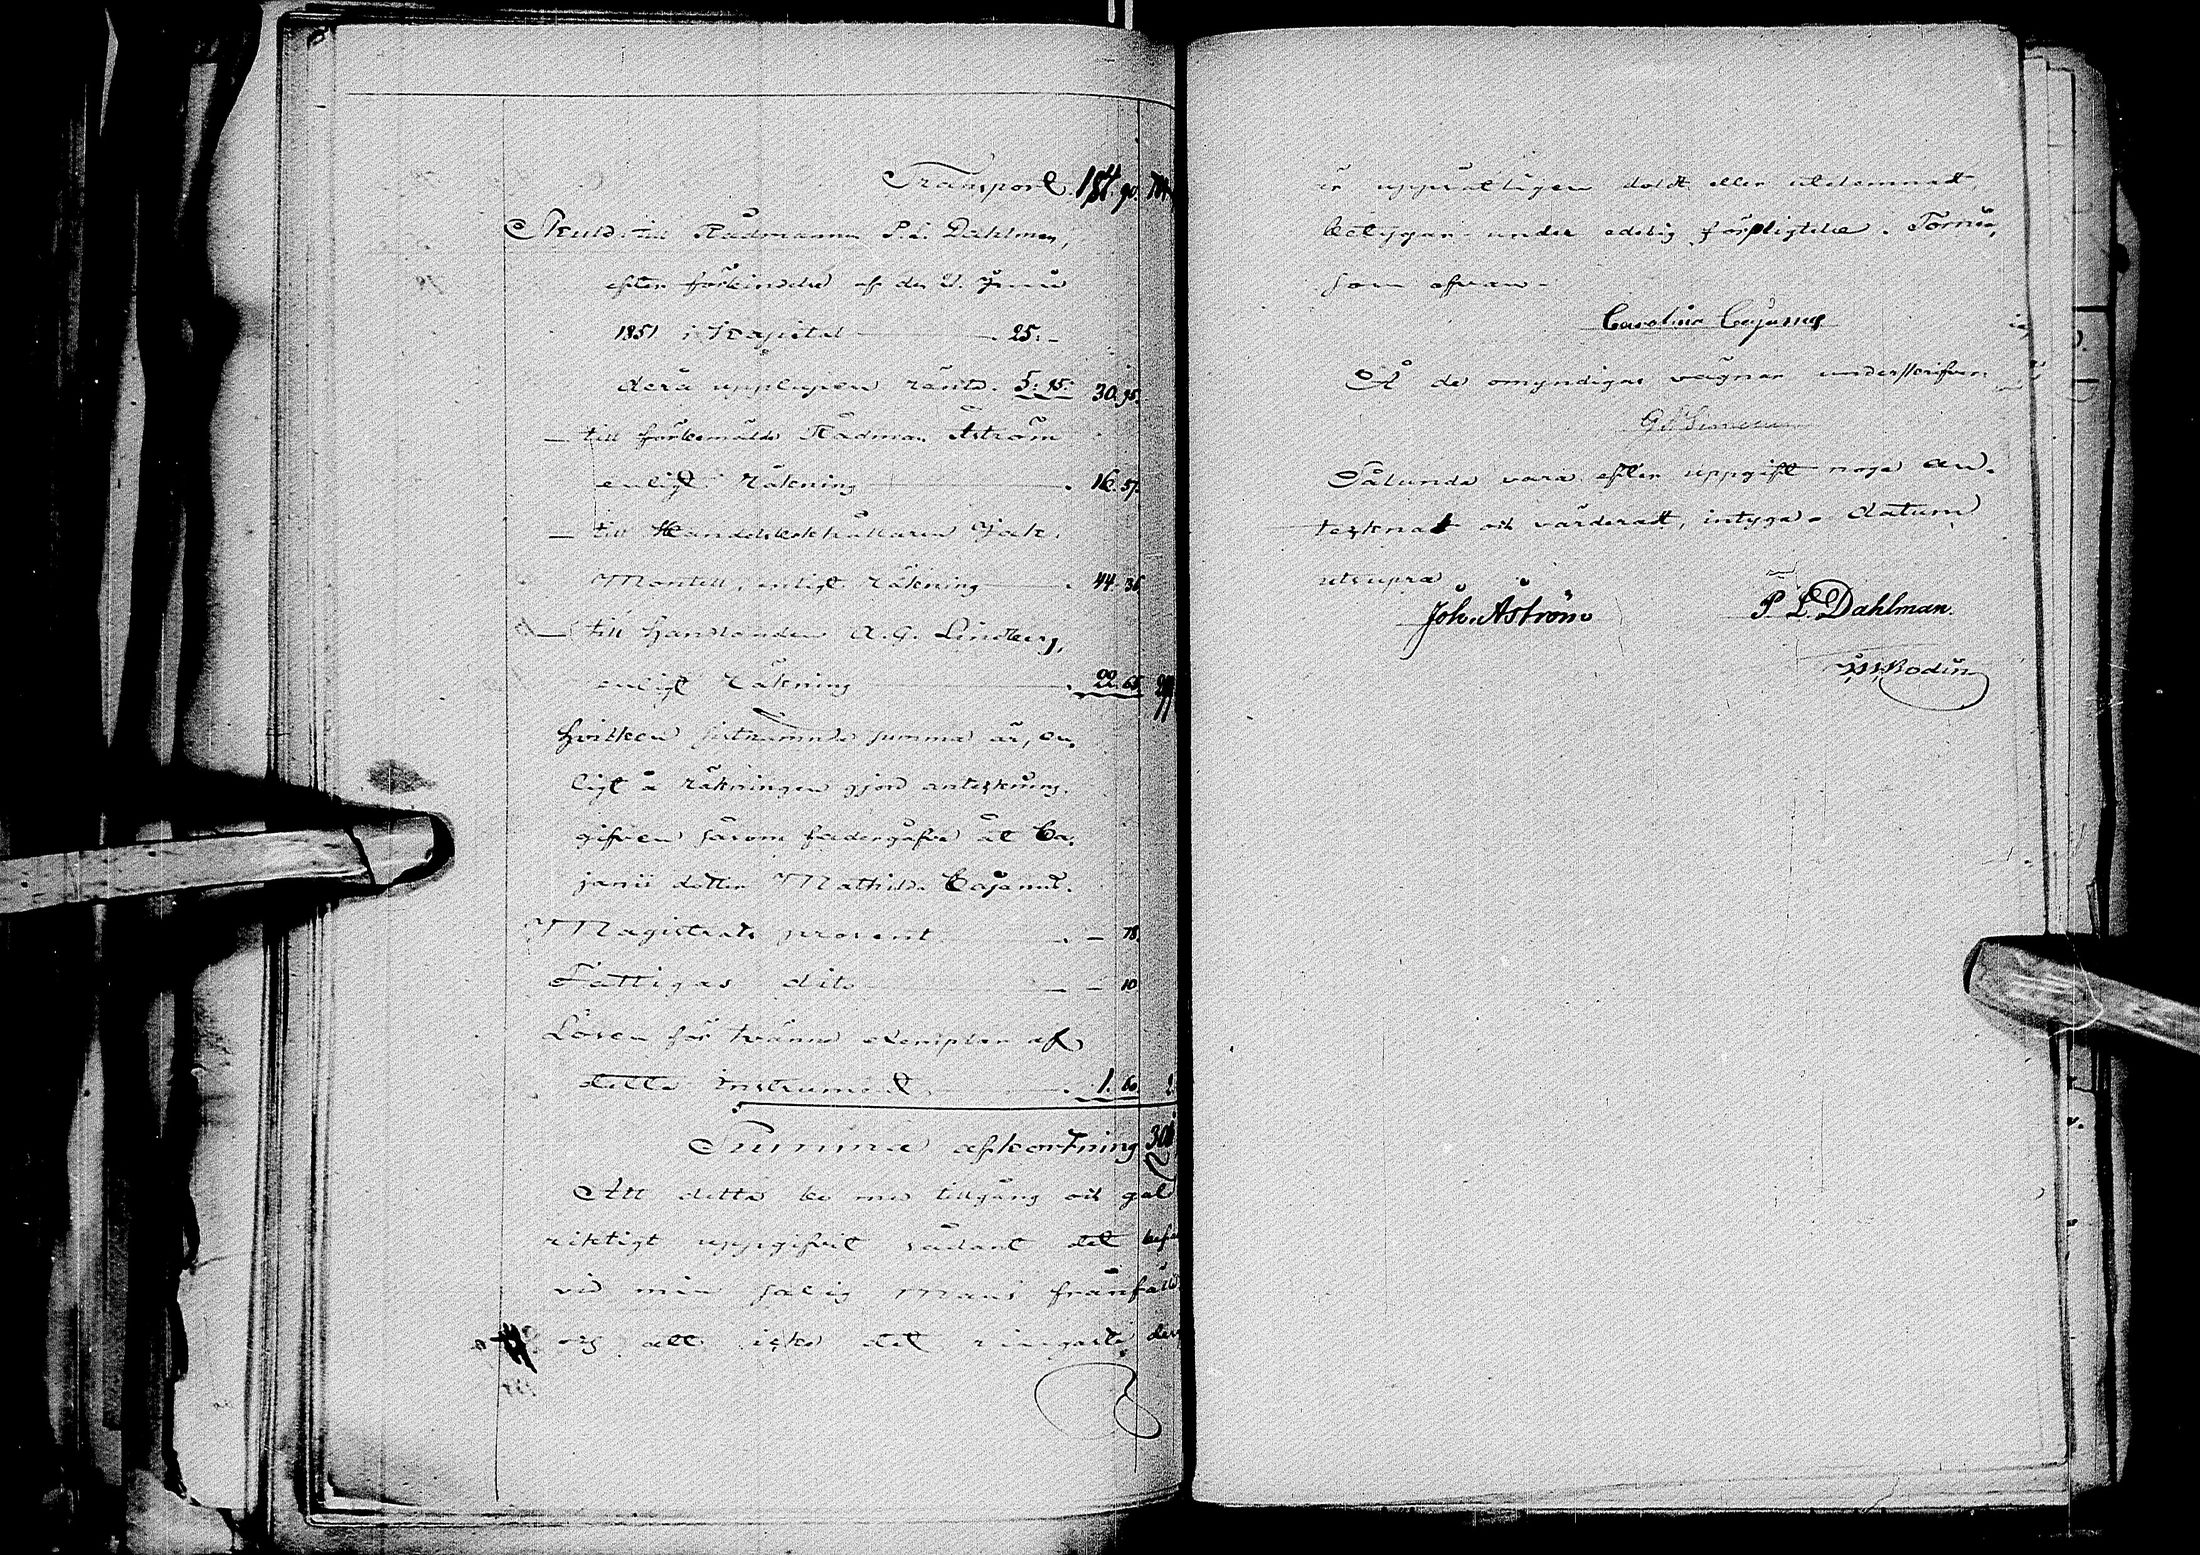 Transport 184. 90.
Skuld till Rådmannen P. L. Dahlman,
efter förbindelse af den 2. Junii
1851 i Kapital 25. -
derå upplupen ränta. 5. 95. 30. 95.
— till förbemälde Rådman Åström
enligt räkning 16. 57.
— till Handelsbokhållaren Jak.
Montell, enligt räkning 44. 36.
— till Handlanden A. G. Lindberg,
enligt räkning 22. 65.
hvilken sistnämnde summa är, en-
ligt å räkningen gjord anteckning,
gifven såsom faddergåfva åt Ca-
janii dotter Mathilda Cajanus.
Magistrats procent — 78.
Fattigas dito — 10
Lösen för tvänne exemplar af
detta instrument 1. 60. 2.
Summa afkortning 30
Att detta bo med tillgång och gäld
riktigt uppgifvit sådant det
vid min salig Mans frånfälle
och att icke det ringaste der
är uppsåtligen doldt eller utelemnadt,
betygar under edelig förpligtelse. Torneå,
som ofvan -
Carolina Cajanus
På de omyndigas vägnar underskrifver
Sålunda vara efter uppgift noga an-
tecknadt och värderadt, intyga. datum
utsupra.
Joh. Åström P. L. Dahlman.
Bodin